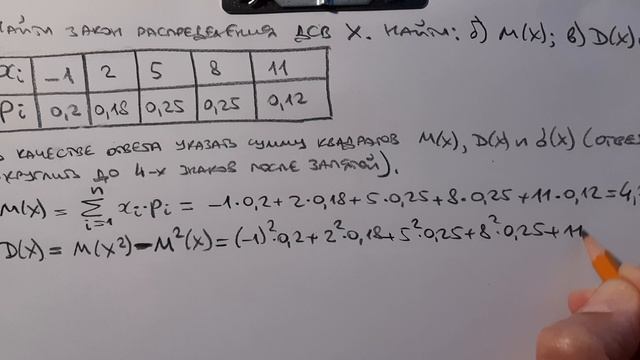 НАЙТИ ЗАКОН РАСПРЕДЕЛЕНИЯ ДСВ X. НАЙТИ: б) M(X); в) D(X).
xi -1 2 5 8 11
Pi 0,2 0,18 0,25 0,25 0,12
КАЧЕСТВЕ ОТВЕТА УКАЗАТЬ СУММУ КВАДРАТОВ M(X), D(X) И σ(X) (ОТВЕТ
ОКРУГЛИТЬ ДО 4-Х ЗНАКОВ ПОСЛЕ ЗАПЯТОЙ).
M(X) = n∑i=1 xi·pi = -1·0,2 + 2·0,18 + 5·0,25 + 8·0,25 + 11·0,12 = 4,
D(X) = M(X²) - M²(X) = (-1)²·0,2 + 2²·0,18 + 5²·0,25 + 8²·0,25 + 11